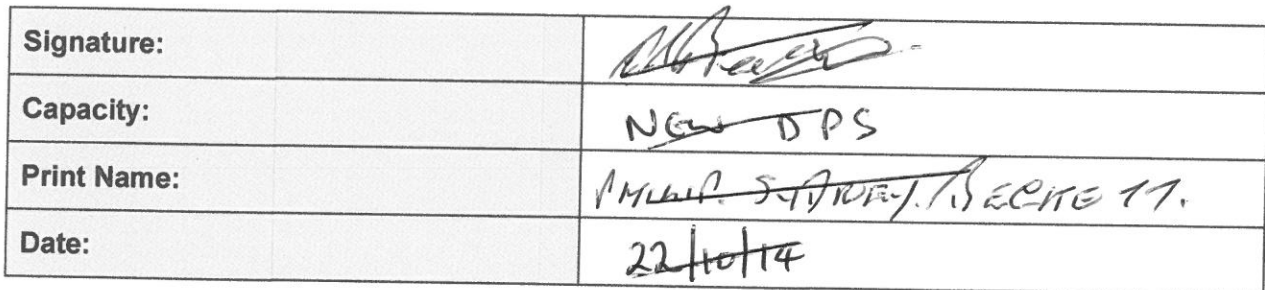 Signature:
Capacity: New DPS
Print Name: PHILLIP. SYDNEY. BECKETT.
Date: 22/10/14